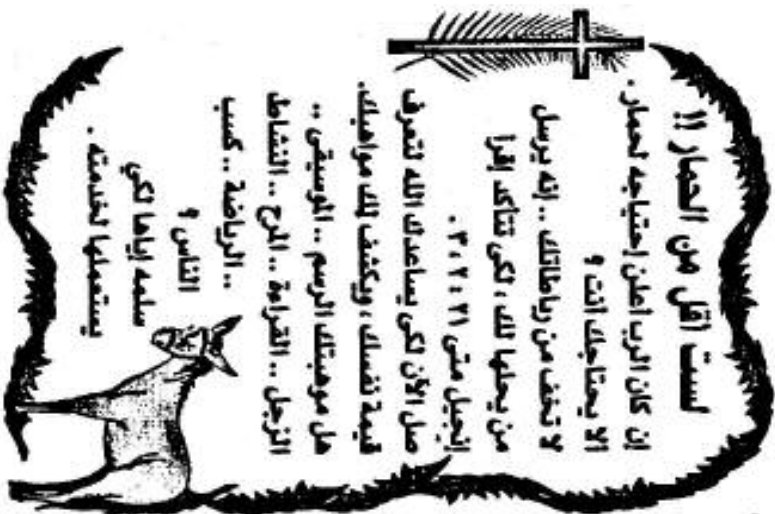 لست اقل من الحمار !!
إن كان الرب اعلن إحتياجه لحمار.
الا يحتاجك انت ؟
لا تخف من رباطاتك .. إنه يرسل
من يحلها لك ، لكى تتأكد إقرا
إنجيل متى ٢١ : ٢ ، ٣ .
صل الآن لكى يساعدك الله لتعرف
قيمة نفسك ، ويكشف لك مواهبك.
هل موهبتك الرسم .. الموسيقى ..
الزجل .. القراءة .. المرح .. النشاط
.. الرياضة .. كسب
الناس ؟
سلمه إياها لكي
يستعملها لخدمته .